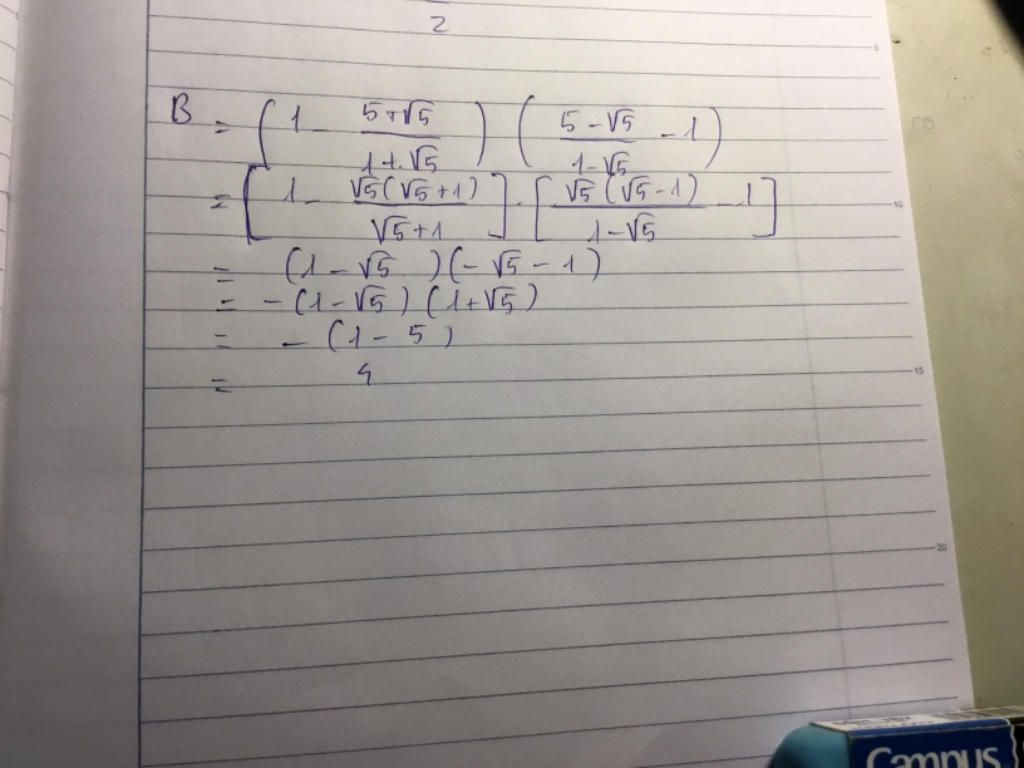 2
5
B = (1 - \frac{5+\sqrt{5}}{1+\sqrt{5}}) (\frac{5-\sqrt{5}}{1-\sqrt{5}} - 1)
= [1 - \frac{\sqrt{5}(\sqrt{5}+1)}{\sqrt{5}+1}] . [\frac{\sqrt{5}(\sqrt{5}-1)}{1-\sqrt{5}} - 1]
10
= (1 - \sqrt{5}) (-\sqrt{5} - 1)
= -(1 - \sqrt{5}) (1 + \sqrt{5})
= -(1 - 5)
= 4
15
20
Campus